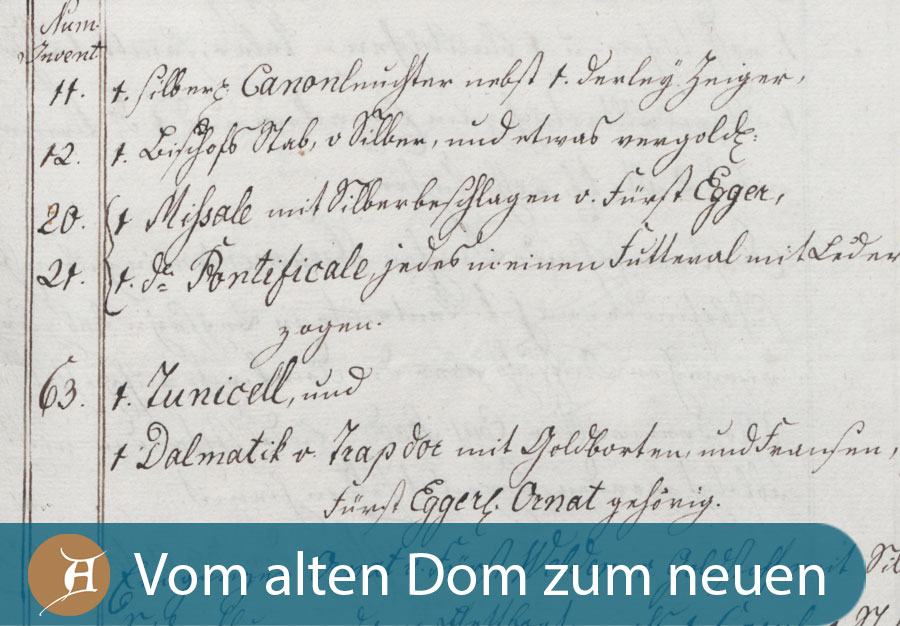 Num.
Invent
11. 1. silber: Canonleuchter nebst 1. derley Zeiger,
12. 1. Bischofs Stab, v Silber, und etwas vergold:
20. 1 Missale mit Silberbeschlagen v. Fürst Egger,
21. 1. do Pontificale, jedes in einen Futteral mit Leder
zogen.
63. 1. Tunicell, und
1 Dalmatik v. Trapdor mit Goldborten, und Fransen,
Fürst Eggerl. Ornat gehörig.
A Vom alten Dom zum neuen